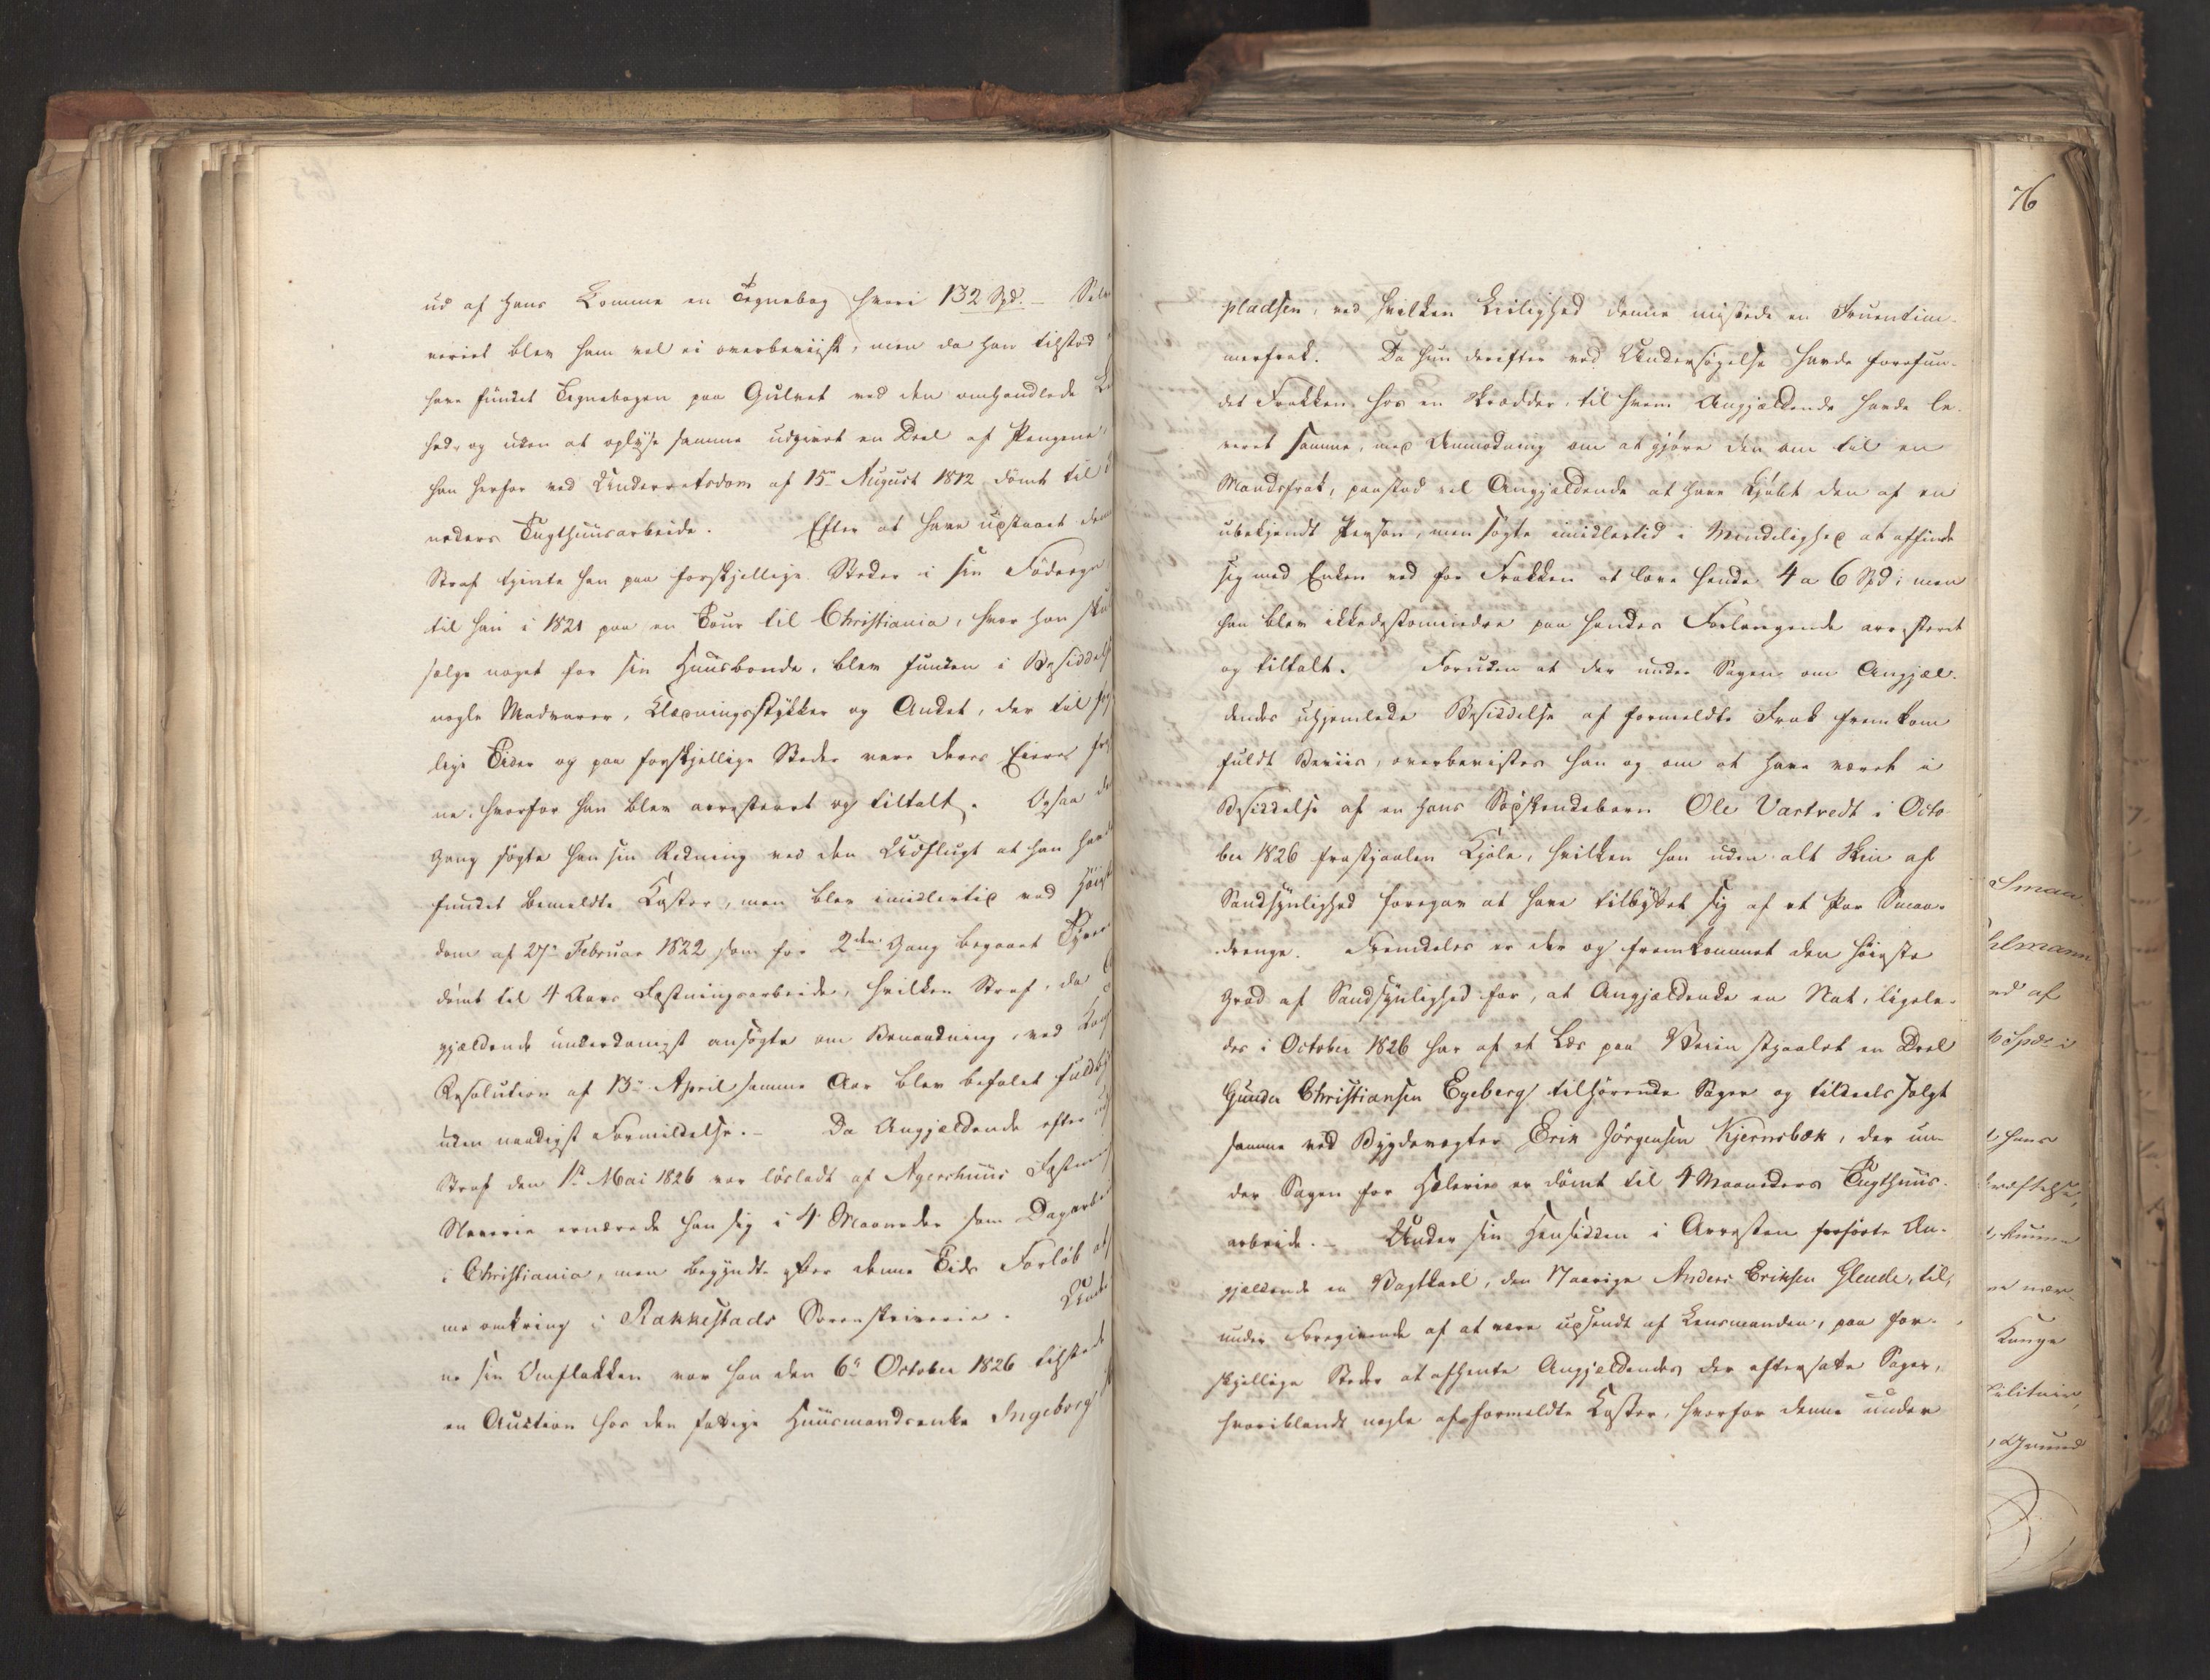 ud af hans Lomme en Tegnebog hvori 132 Spd. – Selv
veriet blev ham vel ei overbeviist, men da han tilstod
have fundet Tegnebogen paa Gulvet ved den omhandlede
hed, og uden at oplyse samme udgivet en Deel af Pengene,
han herfor ved Underretsdom af 15de August 1812 dömt til
neders Tugthuusarbeide. Efter at have udstaaet denne
Straf tjente han paa forskjellige Steder i sin Födeegn
til han i 1821 paa en Tour til Christiania, hvor han skul
sælge noget for sin Huusbonde, blev funden i Besiddelse
nogle Madvarer, Klædningsstykker og Andet, der til for
lige Tider og paa forskjellige Steder vare deres Eiere fra
ne, hvorfor han blev arresteret og tiltalt. Ogsaa de
Gang søgte han sin Redning ved den Udflugt at han havde
fundet bemeldte Koster, men blev imidlertid ved Höieste
dom af 27de Februar 1822 som for 2den Gang begaaet Tyver
dömt til 4 Aars Fæstningsarbeide, hvilken Straf, da
gjældende underdanigst ansøgte om Benaadning, ved Kong
Resolution af 13de April samme Aar blev befalet fuldby
uden naadigst Formildelse. – Da Angjældende efter
Straf den 1ste Mai 1826 var lösladt af Agershuus Fæstnings
Slaverie ernærede han sig i 4 Maaneder som Dagarbei
i Christiania, men begyndte efter denne Tids Forlöb at
me omkring i Rakkestads Sorenskriverie. Under
ne sin Omflakken var han den 6te October 1826 tilstede
en Auction hos den fattige Huusmandsenke Ingeborg
76
pladsen, ved hvilken Leilighed denne mistede en Fruentim-
merfrak. Da hun derefter ved Undersögelse havde forefun-
det Frakken hos en Skrædder, til hvem Angjældende havde le-
veret samme, med Anmodning om at gjöre den om til en
Mandsfrak, paastod vel Angjældende at have kjöbt den af en
ubekjendt Person, men sögte imidlertid i Mindelighed at affinde
sig med Enken ved for Frakken at love hende 4 a 6 Spd; men
han blev ikkedestomindre paa hendes Forlangende arresteret
og tiltalt. Foruden at der under Sagen om Angjæl-
dendes uhjemlede Besiddelse af formeldte Frak fremkom
fuldt Beviis, overbevistes han og om at have været i
Besiddelse af en hans Södskendebarn Ole Vartvedt i Octo
ber 1826 frastjaalen Kjole, hvilken han uden alt Skin af
Sandsynlighed foregav at have tilbyttet sig af et Par Smaa-
drenge. Fremdeles er der og fremkommet den höieste
Grad af Sandsynlighed for, at Angjældende en Nat, ligele-
des i October 1826 har af et Læs paa Veien stjaalet en Deel
Gunder Christiansen Egeberg tilhörende Sager og tildeels solgt
samme ved Bygdevægter Erik Jörgensen Kjernsbæk, der un-
der Sagen for Hælerie er dömt til 4 Maaneders Tugthuus-
arbeide. – Under sin Hensidden i Arresten forförte An-
gjældende en Vagtkarl, den 17aarige Anders Eriksen Glende, til,
under Foregivende af at være udsendt af Lensmanden, paa for-
skjellige Steder at afhente Angjældendes der eftersatte Sager,
hvoriblandt nogle af formeldte Koster, hvorfor denne under
Smaa
hlmann
ed af
t hans
kræftelse,
t kunne
Konge
Grund